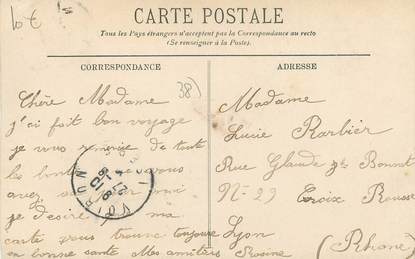 10 €
CARTE POSTALE
Tous les Pays étrangers n'acceptent pas la Correspondance au recto
(Se renseigner à la Poste).
CORRESPONDANCE
38)
Chère Madame
j'ai fait bon voyage
je vous remercie de toute
les bontés vous
avez
je désire ma
carte vous trouve toujours
en bonne santé Mes amitiers Rosine
VOIRON
ADRESSE
Madame
Lucie Barbier
Rue Glaude
N- 29 Croix Rousse
Lyon
(Rhône)